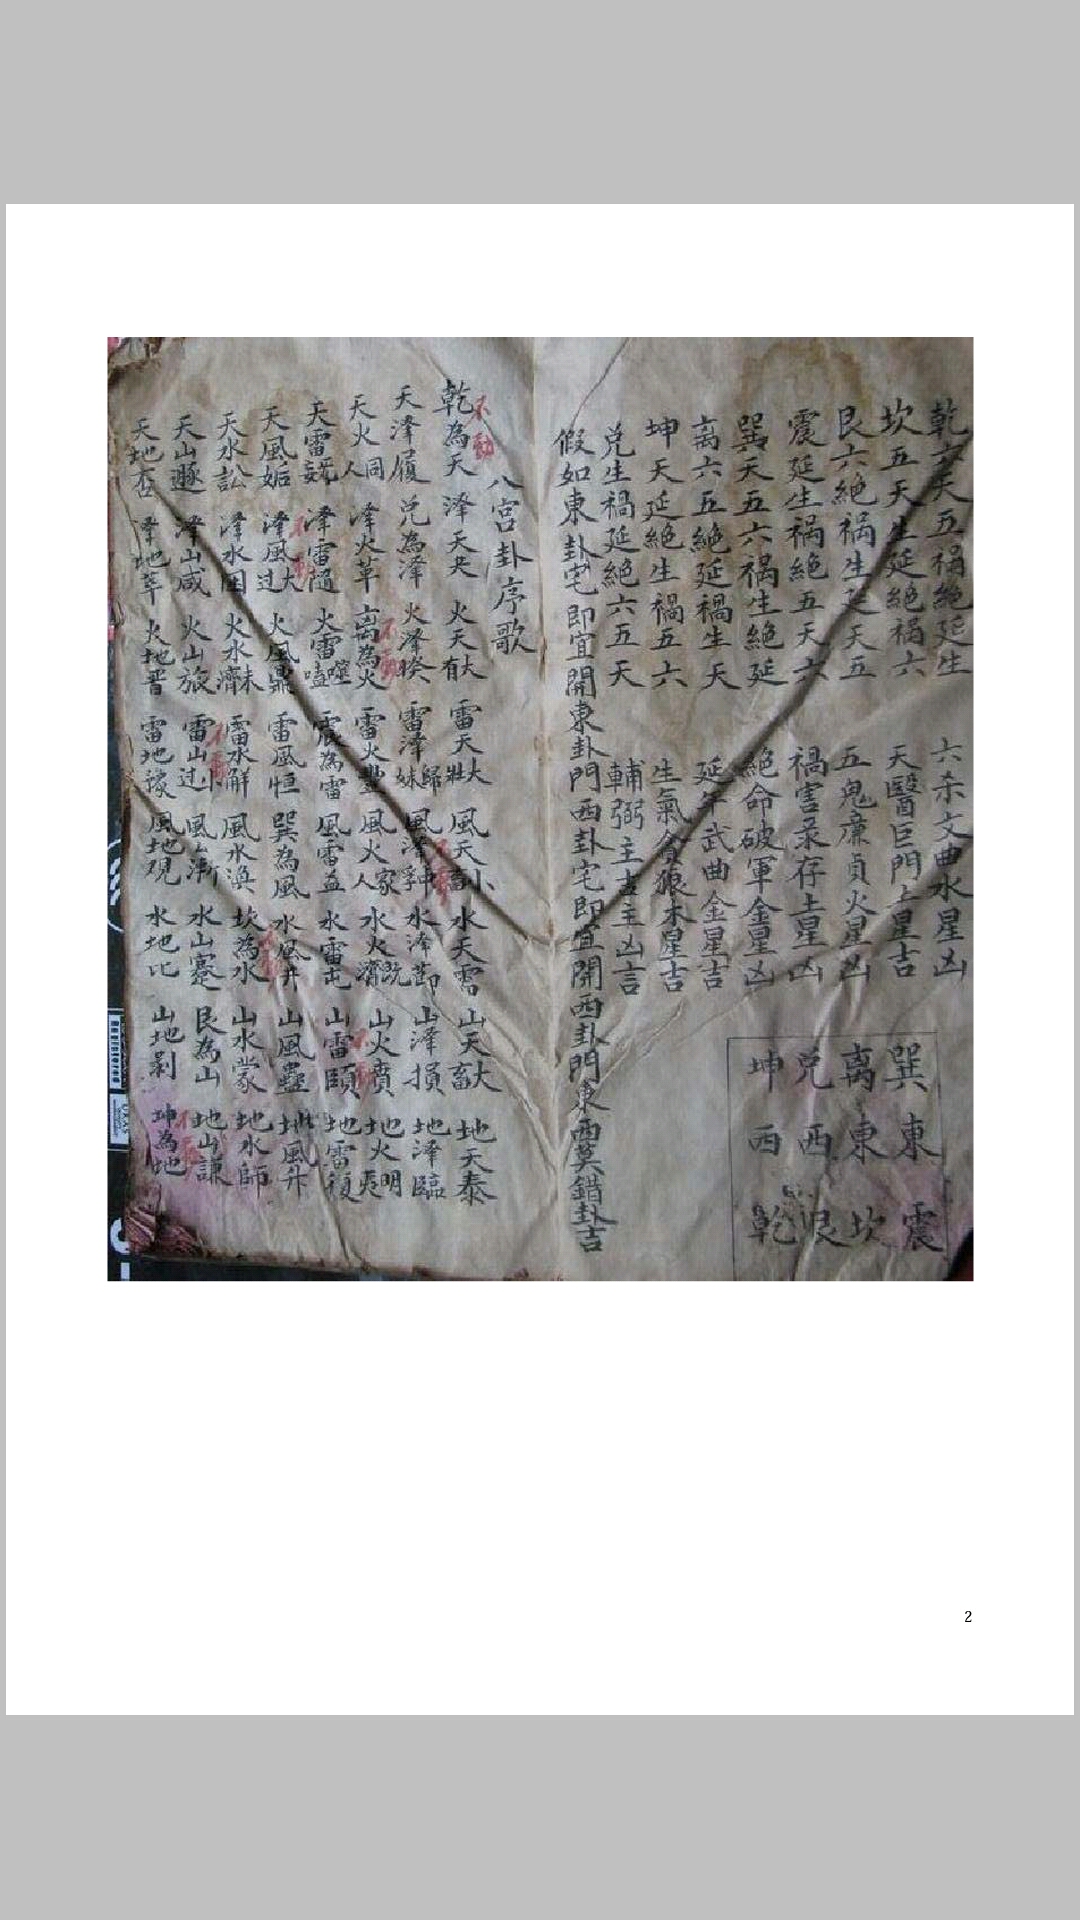 乾六天五禍絶延生 六杀文曲水星凶
坎五天生延絶禍六 天醫巨門土星吉
艮六絶禍生延天五 五鬼廉貞火星凶
震延生禍絶五天六 禍害录存土星凶
巽天五六禍生絶延 絶命破軍金星凶
离六五絶延禍生天 延年武曲金星吉
坤天延絶生禍五六 生氣貪狼木星吉
兑生禍延絶六五天 輔弼主吉主凶吉
巽東震
离東坎
兑西艮
坤西乾
假如東卦宅即宜開東卦門西卦宅即宜開西卦門東西莫錯卦吉
八宫卦序歌
不動
乾為天 泽天夬 火天大有 雷天大壯 風天小畜 水天需 山天大畜 地天泰
天泽履 兑為泽 火泽睽 雷泽歸妹 風泽中孚 水泽節 山泽損 地泽臨
天火同人 泽火革 离為火 雷火豐 風火家人 水火既濟 山火賁 地火明夷
天雷无妄 泽雷隨 火雷噬嗑 震為雷 風雷益 水雷屯 山雷頤 地雷復
天風姤 泽風大过 火風鼎 雷風恒 巽為風 水風井 山風蠱 地風升
天水訟 泽水困 火水未濟 雷水解 風水渙 坎為水 山水蒙 地水師
天山遯 泽山咸 火山旅 雷山小过 風山漸 水山蹇 艮為山 地山謙
天地否 泽地萃 火地晋 雷地豫 風地观 水地比 山地剥 坤為地
2